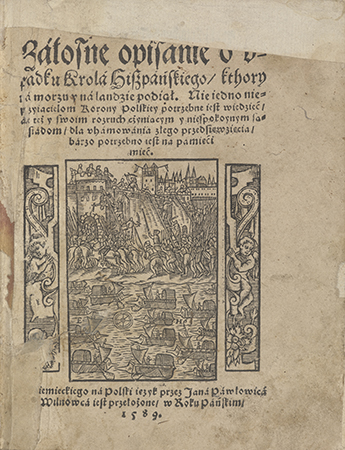 Záłosne opisanie o v-
padku Krolá Hiszpáńskiego/ kthory
ná morzu y ná landzie podiął. Nie iedno nie-
przyiacielom Korony Polskiey potrzebne iest wiedzieć/
ale też y swoim rozruch czyniącym y niespokoynym są-
siadom/ dla vhámowánia złego przedsięwzięcia/
bárzo potrzebno iest ná pámięći
mieć.
iemieckiego ná Polski ięzyk przez Janá Páwłowicá
Wilnowcá iest przełożone/ w Roku Páńskim/
1589.